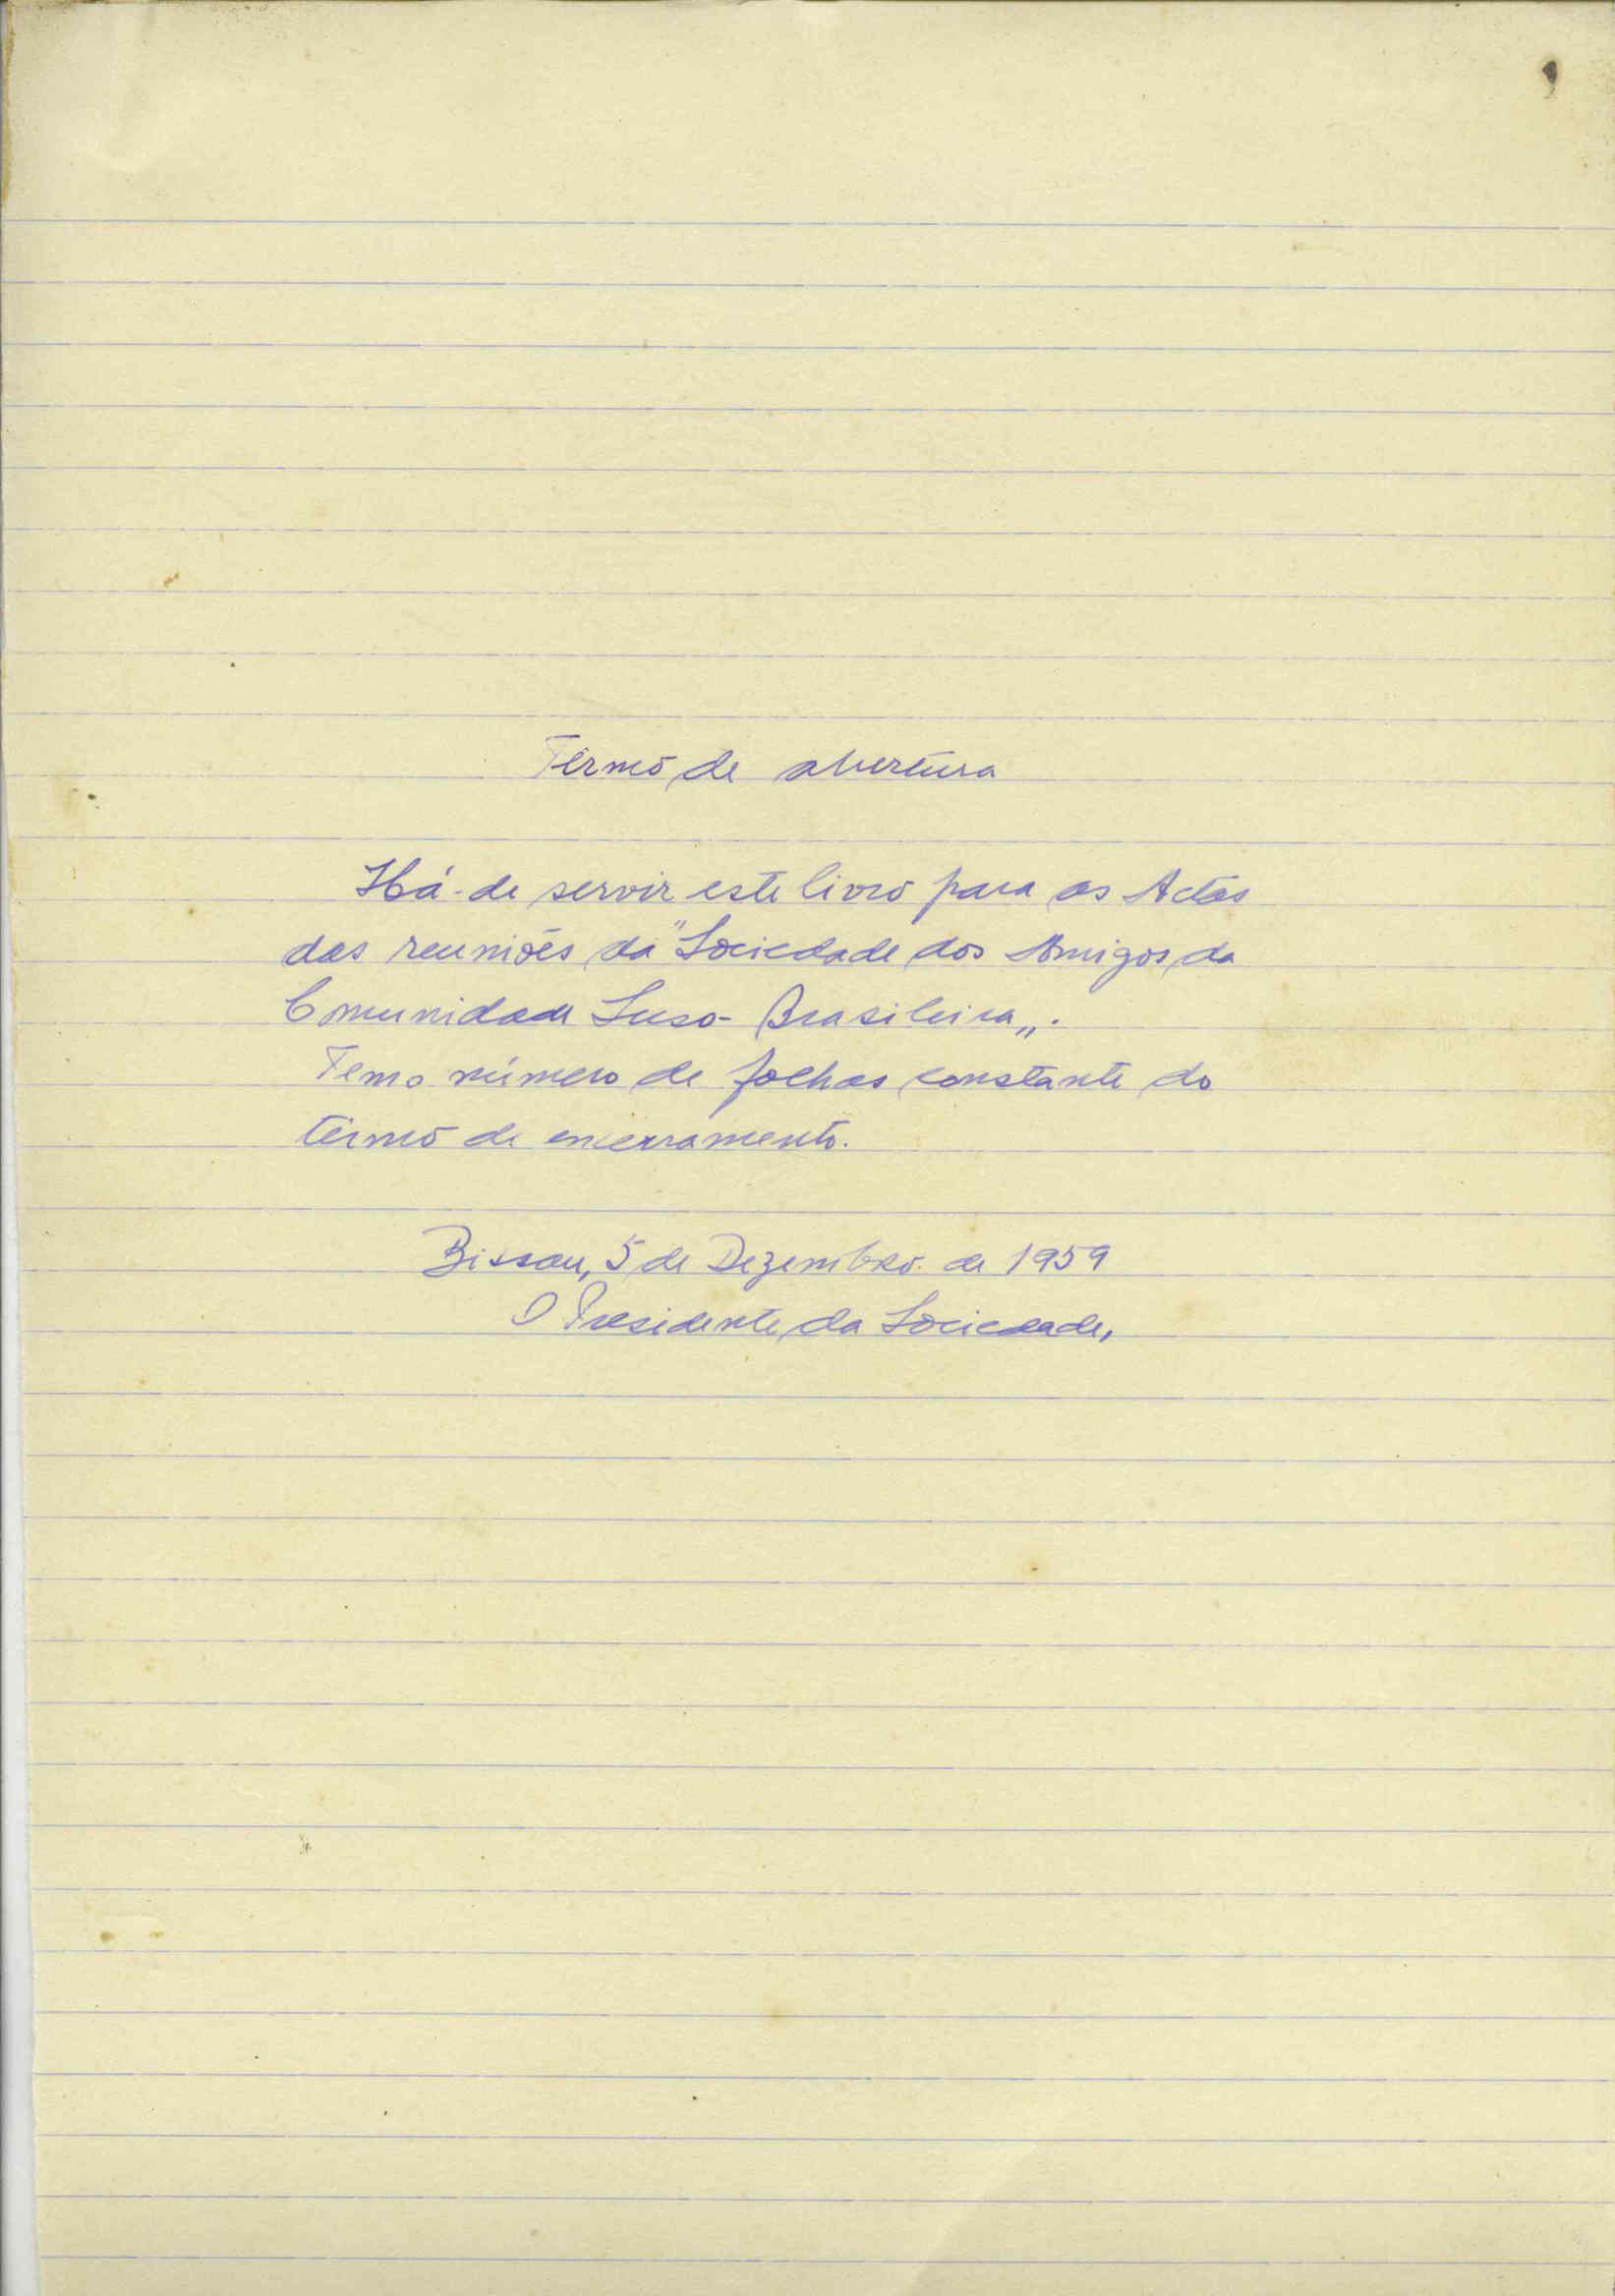 Têrmo de abertura
Há-de servir este livro para as Actas
das reuniões da "Sociedade dos Amigos da
Comunidade Luso-Brasileira„.
Tem o número de folhas constante do
têrmo de encerramento.
Bissau, 5 de Dezembro de 1959
O Presidente da Sociedade,